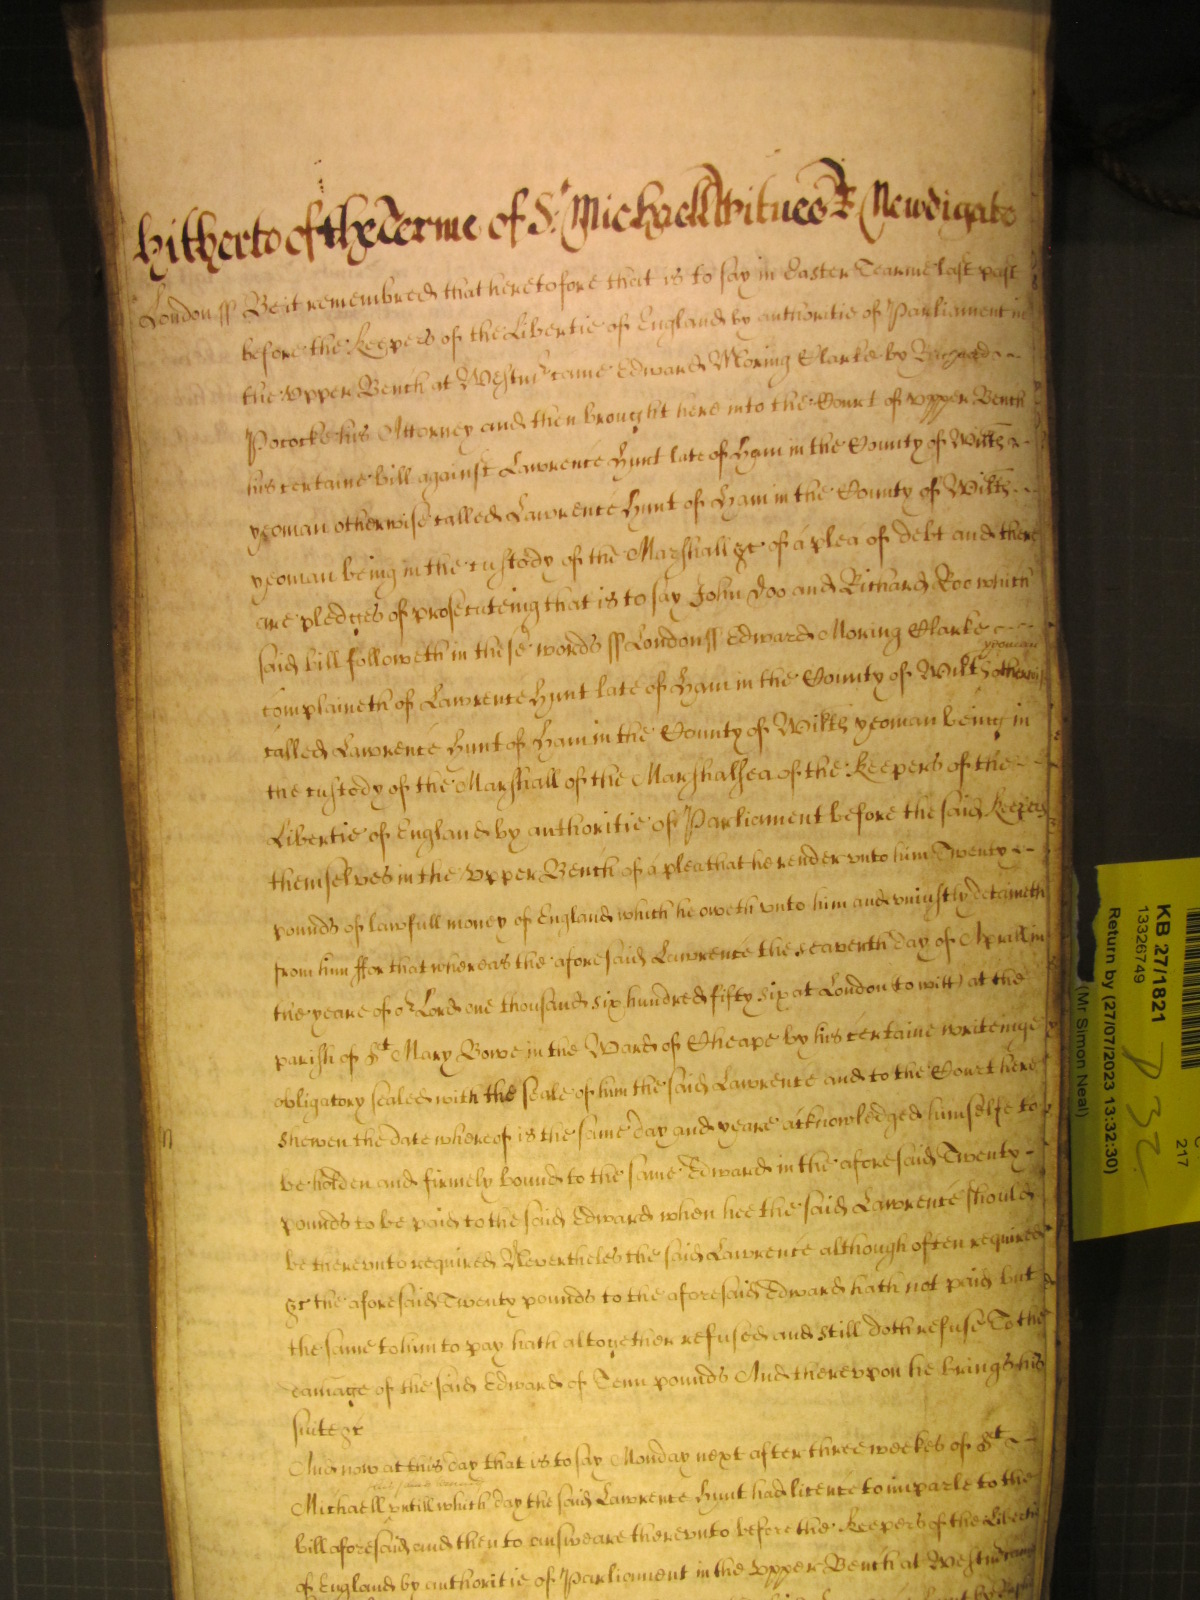 hitherto of the Terme of St Michaell Witnes R Newdigate
London ss Be it remembred that heretofore that is to say in Easter Tearme last past
before the Keepers of the Libertie of England by authoritie of Parliament in
the Vpper Bench at Westmr came Edward Moring Clarke by Richard
Pococke his Attorney and then brought here into the Court of Vpper Bench
his certaine bill against Lawrence Hunt late of Ham in the County of Wiltes
yeoman otherwise called Lawrence Hunt of Ham in the County of Wiltes
yeoman being in the custody of the Marshall &c of a plea of debt and there
are pledges of prosecuteing that is to say John Doo and Richard Roo which
said bill followeth in these words ss London ss Edward Moring Clarke
complaineth of Lawrence Hunt late of Ham in the County of Wiltes yeoman otherwise
called Lawrence Hunt of Ham in the County of Wiltes yeoman being in
the custody of the Marshall of the Marshalsea of the Keepers of the
Libertie of England by authoritie of Parliament before the said Keepers
themselves in the Vpper Bench of a plea that he render vnto him Twenty
pounds of lawfull money of England which he oweth vnto him and vniustly detaineth
from him ffor that whereas the aforesaid Lawrence the seaventh day of Aprill in
the yeare of or Lord one thousand six hundred fifty six at London (to witt) at the
parish of St Mary Bowe in the Ward of Cheape by his certaine writeinge
obligatory sealed with the seale of him the said Lawrence and to the Court here
shewen the date whereof is the same day and yeare acknowledged himselfe to
be holden and firmely bound to the same Edward in the aforesaid Twenty
pounds to be paid to the said Edward when hee the said Lawrence should
be therevnto required Nevertheles the said Lawrence although often required
&c the aforesaid Twenty pounds to the aforesaid Edward hath not paid but
the same to him to pay hath altogether refused and still doth refuse To the
damage of the said Edward of Tenn pounds And therevpon he brings his
suite &c
And now at this day that is to say Monday next after three weekes of St
Michaell vntill which day the said Lawrence Hunt had licence to imparle to the
bill aforesaid and then to answeare therevnto before the Keepers of the Libertie
of England by authoritie of Parliament in the Vpper Bench at Westmr
KB 27/1821
13326749
217
Return by (27/07/2023 13:32:30)
(Mr Simon Neal)